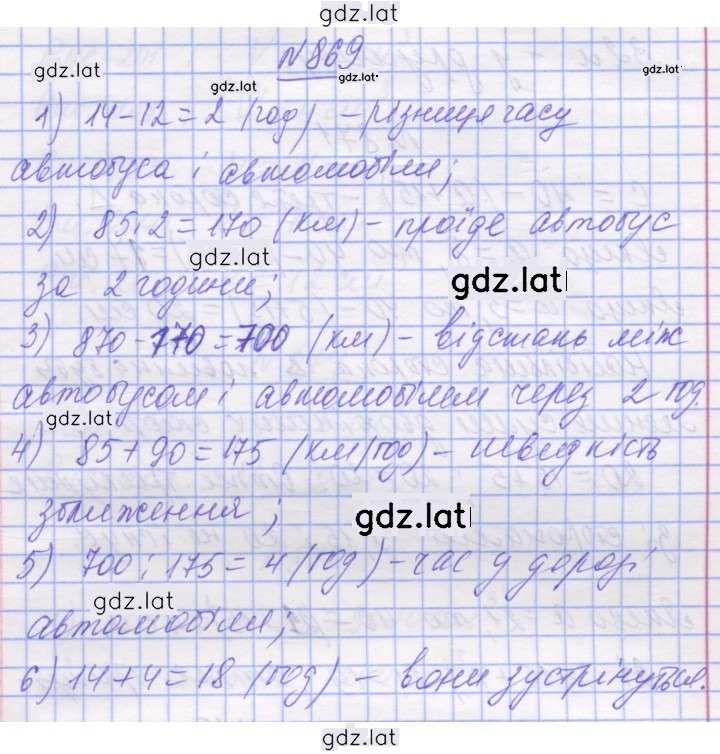 gdz.lat
№869
gdz.lat
gdz.lat
gdz.lat
1) 14-12=2 (год) – різниця часу
автобуса і автомобіля;
2) 85·2=170 (км) – проїде автобус
gdz.lat
gdz.lat
за 2 години;
3) 870-170=700 (км) – відстань між
автобусом і автомобілем через 2 год.
gdz.lat
4) 85+90=175 (км/год) – швидкість
зближення;
gdz.lat
5) 700:175=4 (год) – час у дорозі
gdz.lat
автомобіля;
6) 14+4=18 (год) – вони зустрінуться.
gdz.lat